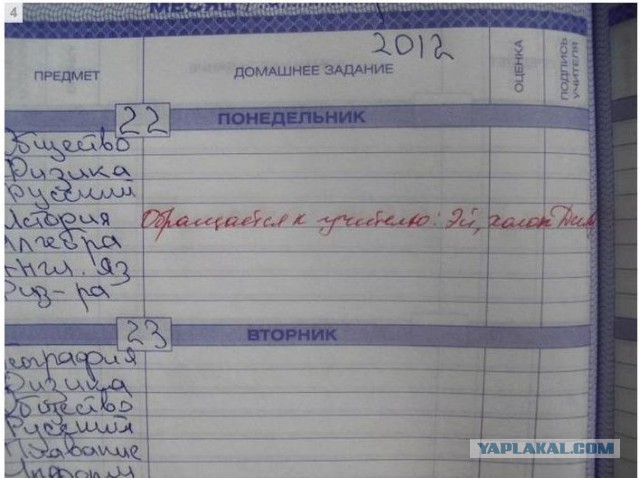 4
МЕСЯЦ
2012
ПРЕДМЕТ
ДОМАШНЕЕ ЗАДАНИЕ
ОЦЕНКА
ПОДПИСЬ УЧИТЕЛЯ
22
ПОНЕДЕЛЬНИК
Общество
Физика
Русский
История Обращается к учителю: Эй, холоп
Алгебра
Англ. яз
Физ-ра
23
ВТОРНИК
География
Физика
Общество
Русский
Плавание
Информ
YAPLAKAL.COM